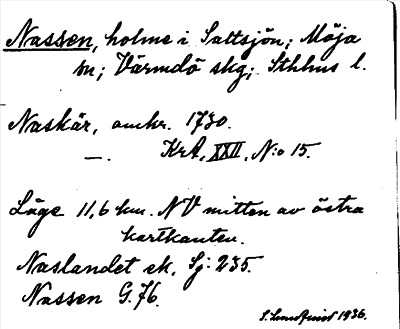 Nassen, holme i Saltsjön; Möja
sn; Värmdö skg; Sthlms l.
Naskär, omkr. 1730.
—. KrA, XXII, N:o 15.
Läge 11,6 km. NV mitten av östra
kartkanten.
Naslandet ek, Sj: 235.
Nassen G. 76.
S. Lundquist 1936.